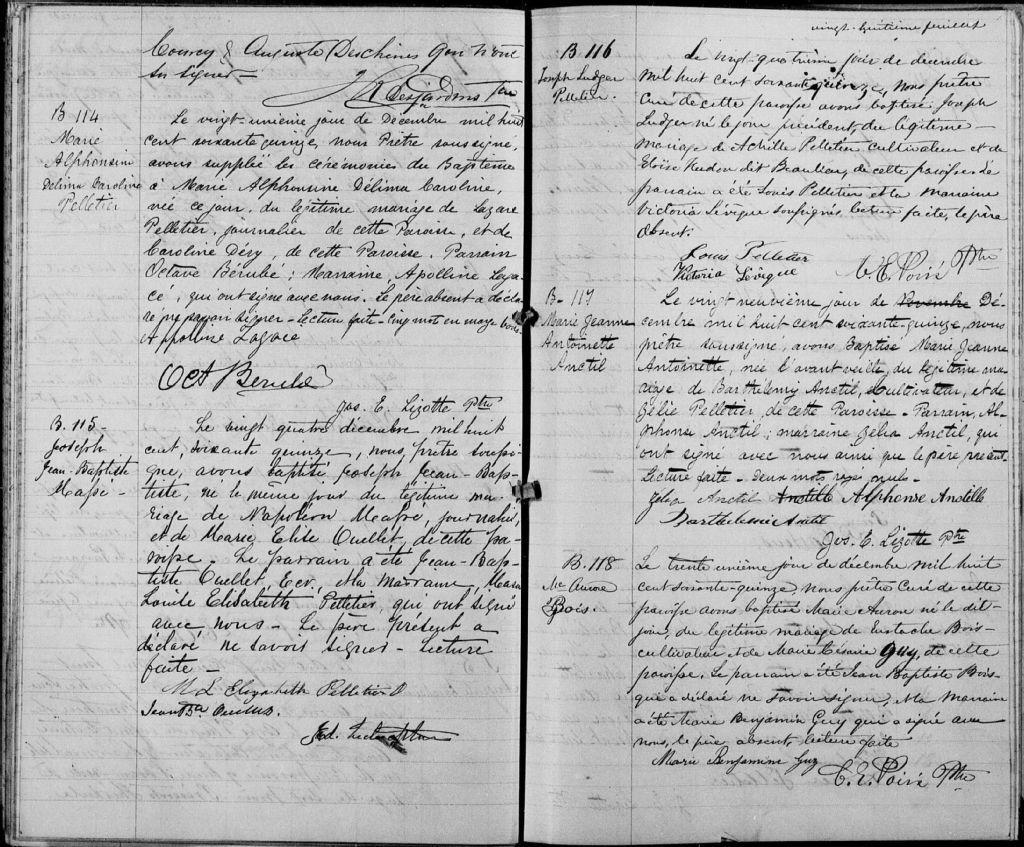 Courcy & Auguste Deschènes qui n'ont
su signer =
Desjardins Ptre
B 114
Marie
Alphonsine
Délima Caroline
Pelletier
Le vingt-unième jour de Décembre mil huit
cent soixante quinze, nous Prêtre soussigné,
avons supplié les cérémonies du Baptême
à Marie Alphonsine Délima Caroline,
née ce jour, du légitime mariage de Lazare
Pelletier, journalier de cette Paroisse, et de
Caroline Déry, de cette Paroisse. Parrain
Octave Bérubé ; Marraine, Apolline Laga-
cé, qui ont signé avec nous. Le père absent a décla-
ré ne savoir signer - Lecture faite - Cinq mot en marge bons
Appolline Lagace
Oct Berubé
Jos. E. Lizotte Ptre
B. 115-
Joseph
Jean-Baptiste
Massé -
Le vingt quatre décembre mil huit
cent, soixante quinze, nous, prêtre soussi-
gné, avons baptisé Joseph Jean-Bap-
tiste, né le même jour du légitime ma-
riage de Napoléon Massé, journalier,
et de Marie Elise Ouellet, de cette pa-
roisse - Le parrain a été Jean-Bap-
tiste Ouellet, Ecr, et la marraine Maria
Louise Elisabeth Pelletier, qui ont signé
avec nous - Le père présent a
déclaré ne savoir signer - Lecture
faite -
M L Elizabeth Pelletier
Jean Bte
Ed.
vingt-huitième feuillet
B. 116
Joseph Ludger
Pelletier.
Le vingt-quatrième jour de decembre
mil huit cent soixante quinze, nous prêtre
curé de cette paroisse avons baptisé Joseph
Ludger né le jour précédent, du légitime
mariage de Achille Pelletier cultivateur et de
Eloise Hudon dit Beaulieu, de cette paroisse. Le
parrain a été Louis Pelletier et la marraine
Victoria Lévêque soussignés lecture faite, le père
absent.
Louis Pelletier
Victoria Levêque
C. E. Poiré Ptre
B- 117
Marie Jeanne
Antoinette
Anctil
Le vingt neuvième jour de Novembre Dé-
cembre mil huit cent soixante-quinze, nous
prêtre soussigné, avons Baptisé Marie Jeanne
Antoinette, née l'avant veille, du légitime ma-
riage de Barthélemy Anctil, Cultivateur, et de
Zélie Pelletier, de cette Paroisse - Parrain, Al-
phonse Anctil ; marraine Zélia Anctil, qui
ont signé avec nous ainsi que le père présent.
Lecture faite - deux mots rayés nuls -
Zélia Anctil Anctille Alphonse Anctille
Barthelemie Anctil
Jos. E. Lizotte Ptre
B. 118
Me Aurore
Bois.
Le trente unième jour de décembre mil huit
cent soixante-quinze, nous prêtre Curé de cette
paroisse avons baptisé Marie Auror né le dit
jour, du légitime mariage de Eustache Bois
cultivateur et de Marie Césarie Guy, de cette
paroisse. Le parrain a été Jean Baptiste Bois
qui a déclaré ne savoir signer, et la marraine
a été Marie Benjamin Guy qui a signé avec
nous, le père absent, lecture faite
Marie Benjamine Guy
C. E. Poiré Ptre